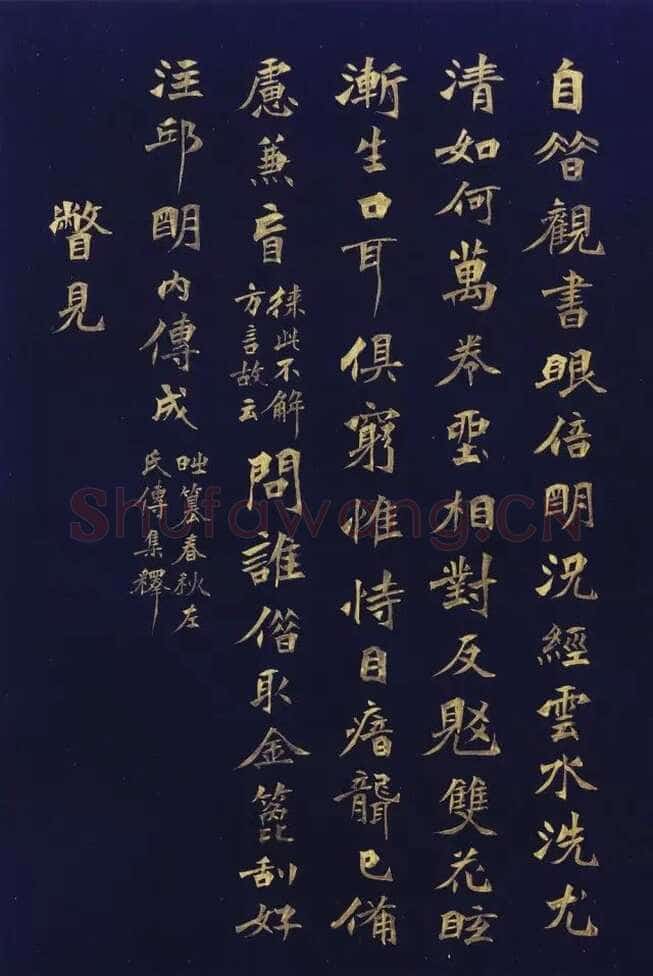 自昔觀書眼倍明況經雲水洗尤
清如何萬卷相對反雙花眩
漸生口耳俱窮惟恃目瘖聾已備
慮兼盲
徠此不解
方言故云
問誰借取金篦刮好
注邱明內傳成
時纂春秋左
氏傳集釋
瞥見
Shufawang.CN